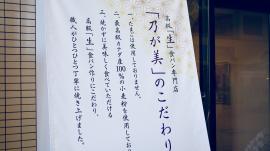 高級「生」食パン専門店
「乃が美」のこだわり
一、たまごは使用しておりません。
二、最高級カナダ産100%の小麦粉を使用しており
三、焼かずに美味しく食べていただける
高級「生」食パン作りにこだわり、
職人がひとつひとつ丁寧に焼き上げました。